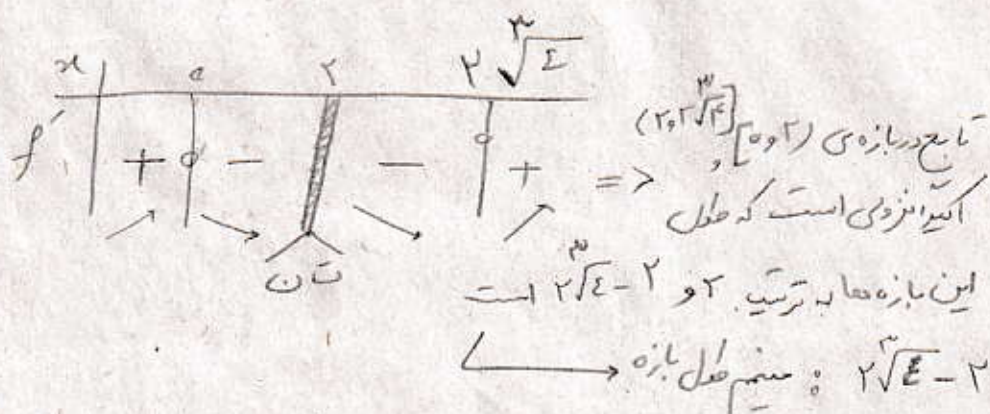 x ۰ ۲ ۲∛٤
f′ + ۰ − − ۰ +
ت ن
=> تابع در بازه‌ی [۰و۲) و (۲و۲∛۴]
اکیدا نزولی است که طول
این بازه‌ها به ترتیب ۲ و ۲∛٤ - ۲ است
مینیمم طول بازه : ۲∛٤ - ۲